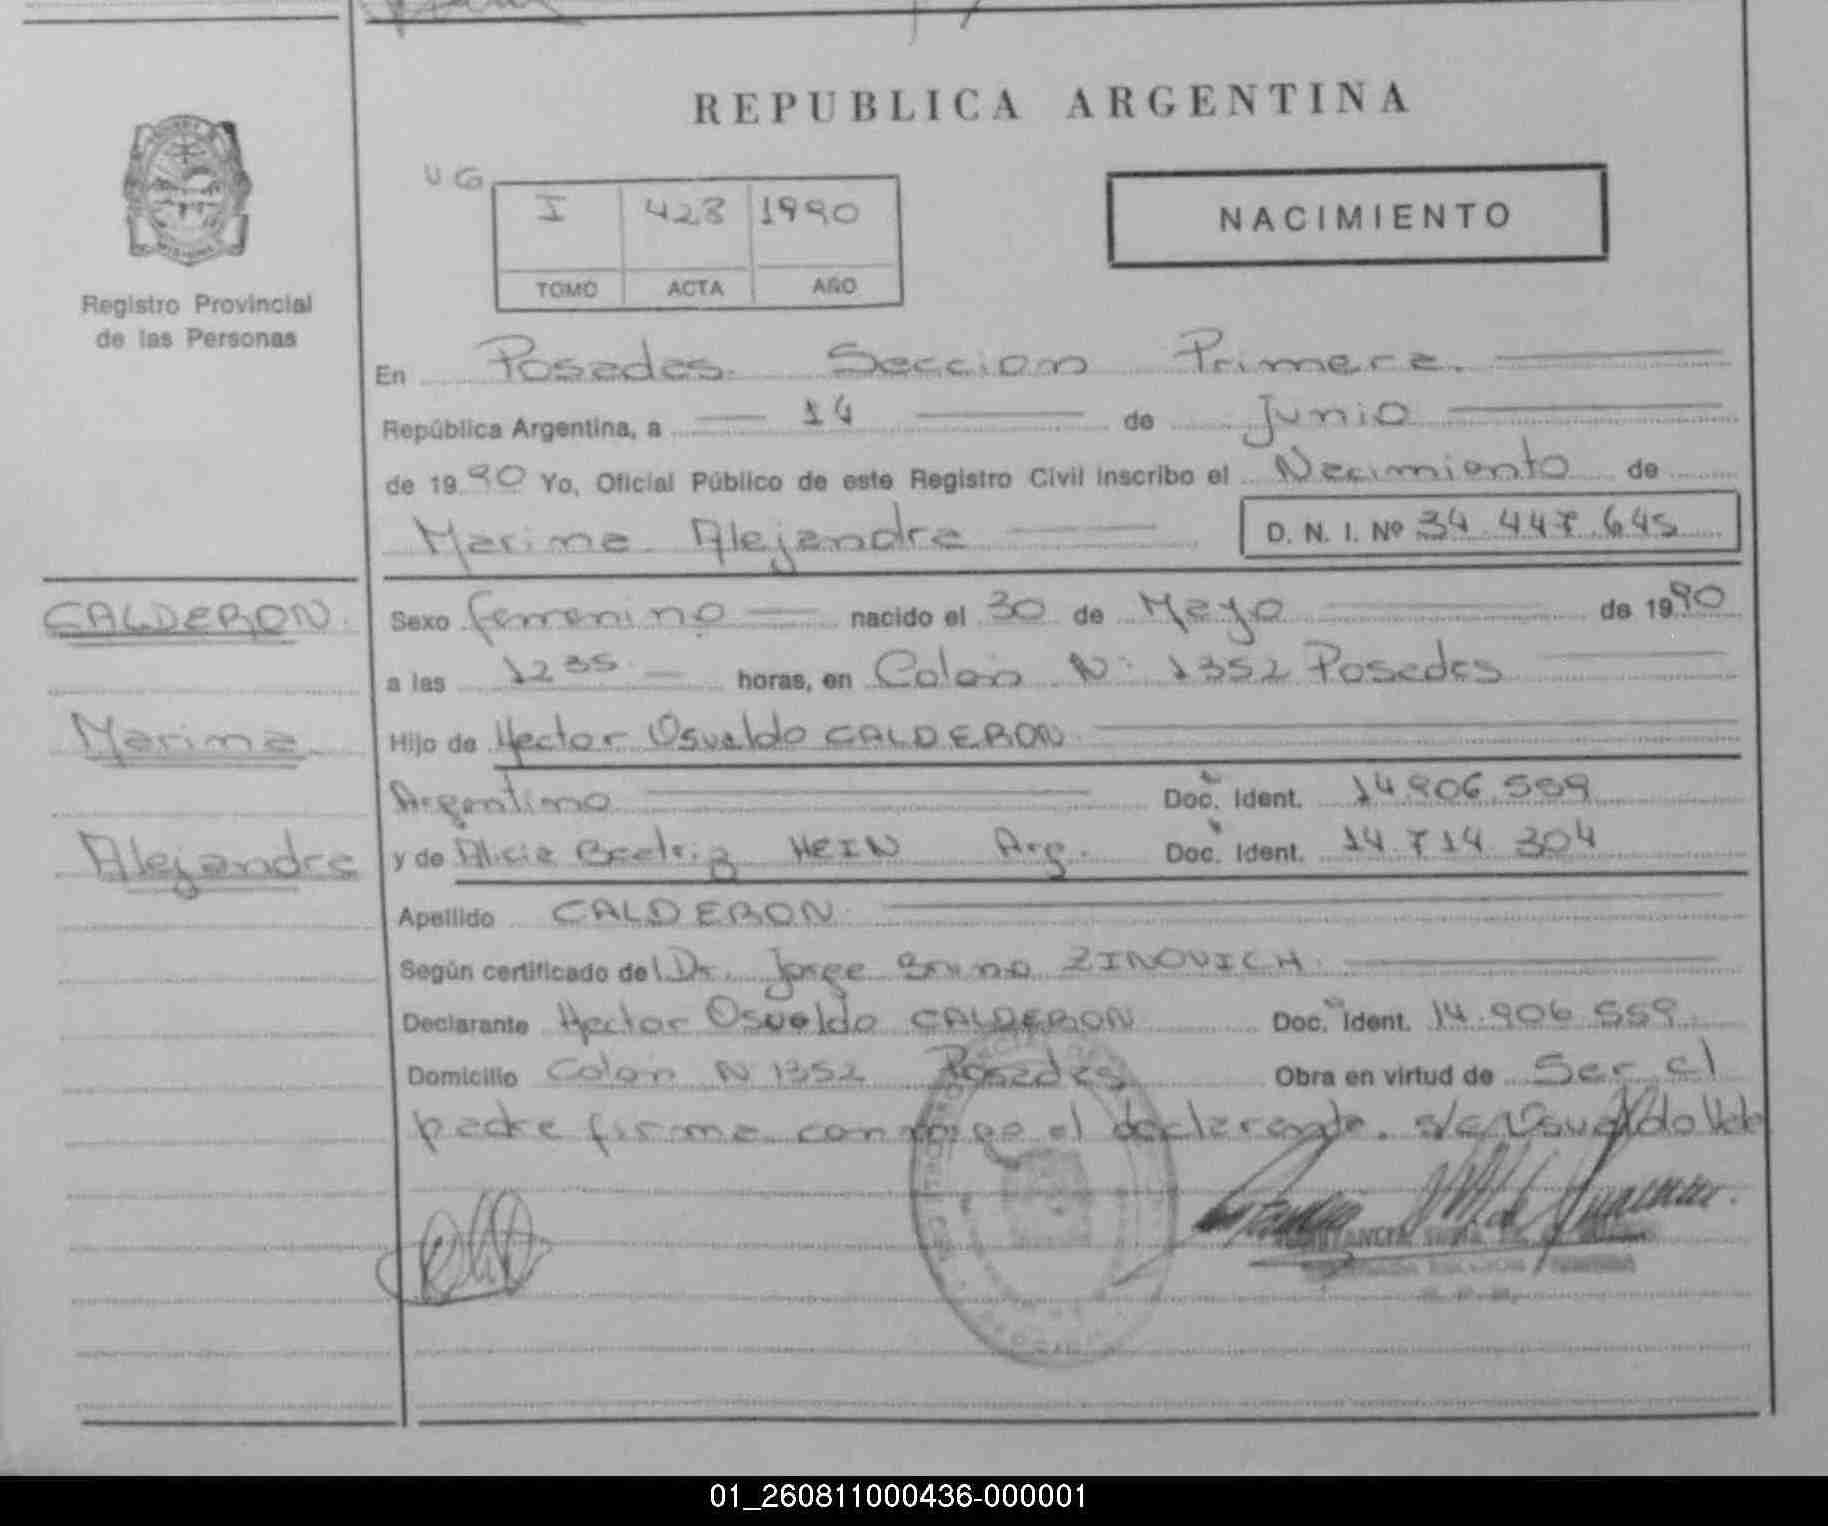 REPUBLICA ARGENTINA
UG
I 428 1990
TOMO ACTA AÑO
NACIMIENTO
Registro Provincial
de las Personas
En Posadas. Seccion Primera.
República Argentina, a 14 de Junio
de 1990 Yo, Oficial Público de este Registro Civil inscribo el Nacimiento de
Marina Alejandra D. N. I. Nº 34.447.645
CALDERON.
Marina
Alejandra
Sexo femenino nacido el 30 de Mayo de 1990
a las 12 35 horas, en Colón N: 1352 Posadas
Hijo de Hector Osvaldo CALDERON
Argentino Doc. Ident. 14.906.559
y de Alicia Beatriz HEIN Arg. Doc. Ident. 14.714.304
Apellido CALDERON.
Según certificado del Dr. Jorge Bruno ZINOVICH.
Declarante Hector Osvaldo CALDERON Doc. Ident. 14.906.559
Domicilio Colón N 1352 Posadas Obra en virtud de Ser el
padre firma conmigo el declarante. s/e/Osvaldo Vale
01_260811000436-000001